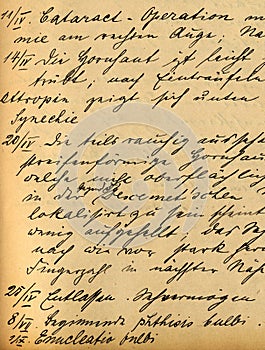 11/IV Cataract-Operation m
mie am rechten Auge; Na
14/IV Die Hornhaut ist leicht
trübt; nach Einträufeln
Attropin zeigt sich unten
Synechie
20/IV Die teils rauchig aussehe
Hornhau
welche mehr oberflächlig
in der Descemet'schen
lokalisirt zu sein scheint
wenig aufgehellt. Das Se
nach wie vor stark her
Fingerzahl in nächster Näh
25/IV Entlassen. Sehvermögen
8/VI Beginnende phthisis bulbi.
Enucleatio bulbi